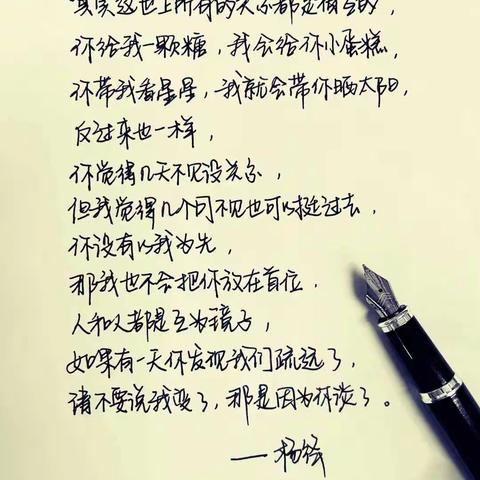 其实这世上所有的关系都是相互的，
你给我一颗糖，我会给你小蛋糕，
你带我看星星，我就会带你晒太阳，
反过来也一样，
你觉得几天不见没关系，
但我觉得几个月不见也可以挺过去，
你没有以我为先，
那我也不会把你放在首位，
人和人都是互为镜子，
如果有一天你发现我们疏远了，
请不要说我变了，那是因为你淡了。
——杨绛